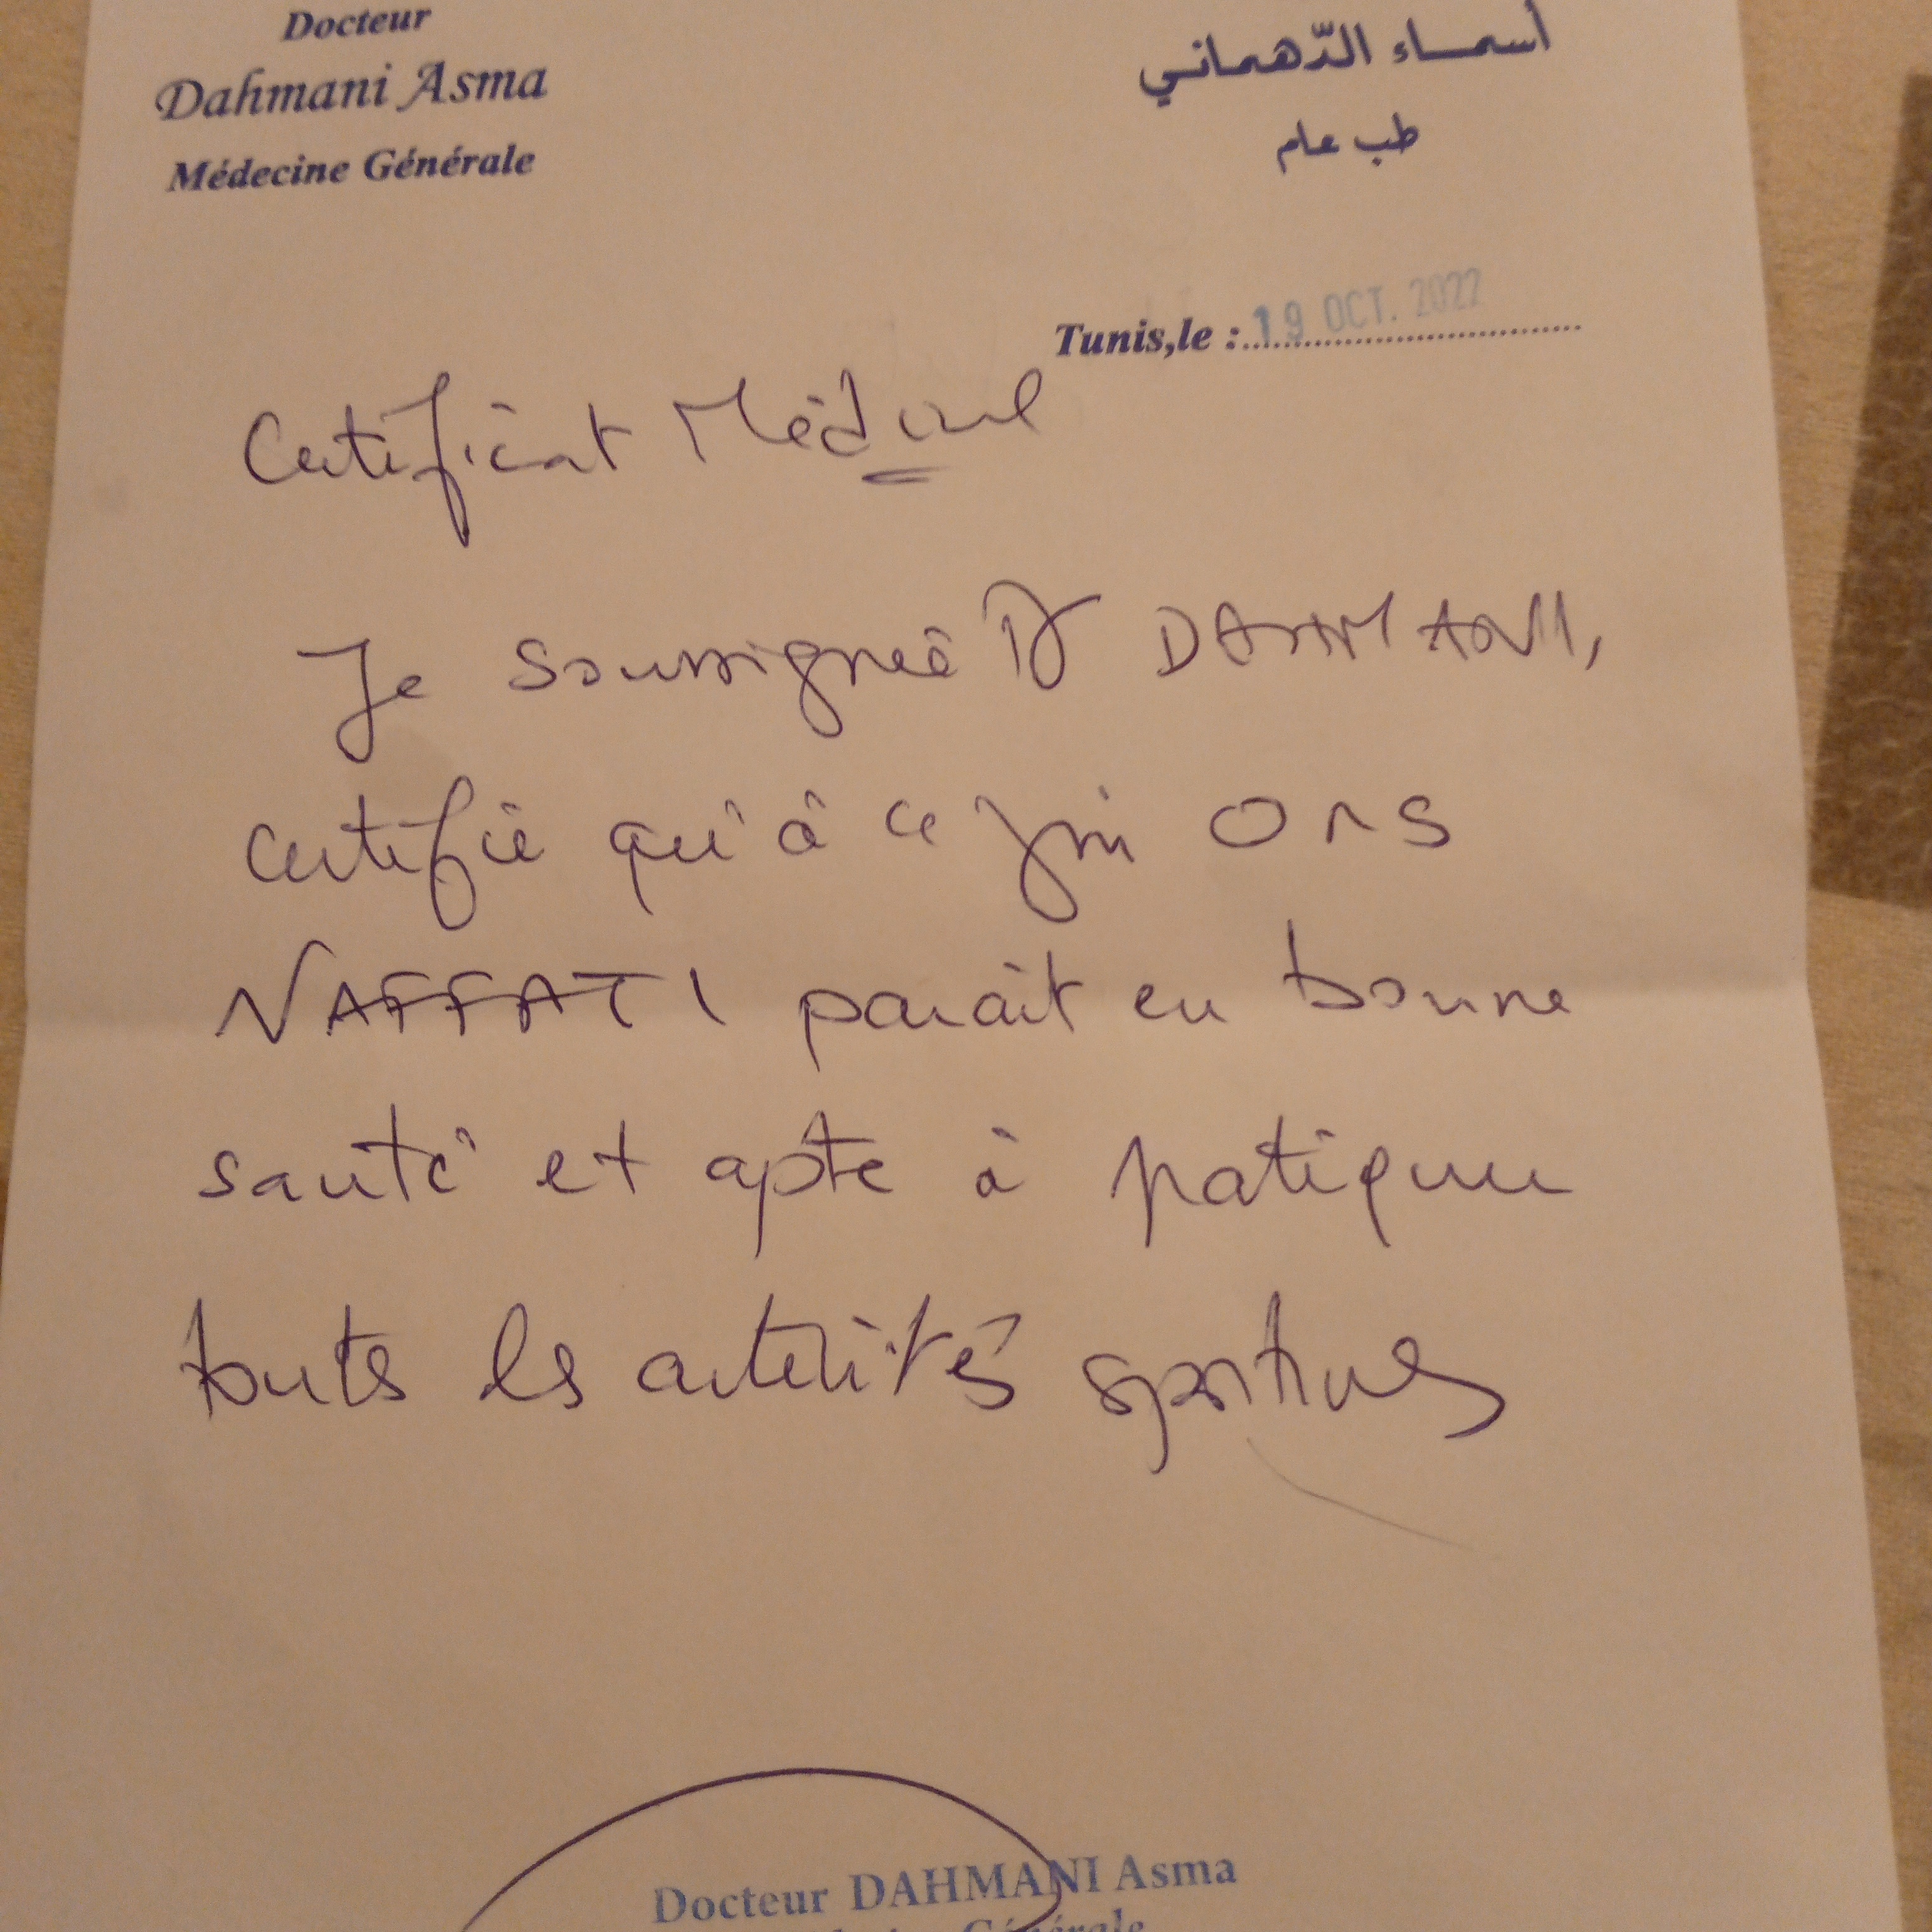 Docteur
Dahmani Asma
Médecine Générale
أسماء الدّهماني
طب عام
Tunis,le : 19 OCT. 2022
Certificat Médical
Je soussignée Dr DAHMANI,
certifie qu'à ce jour Ons
NAFFATI parait en bonne
santé et apte à pratiquer
toutes les activités sportives
Docteur DAHMANI Asma
Générale